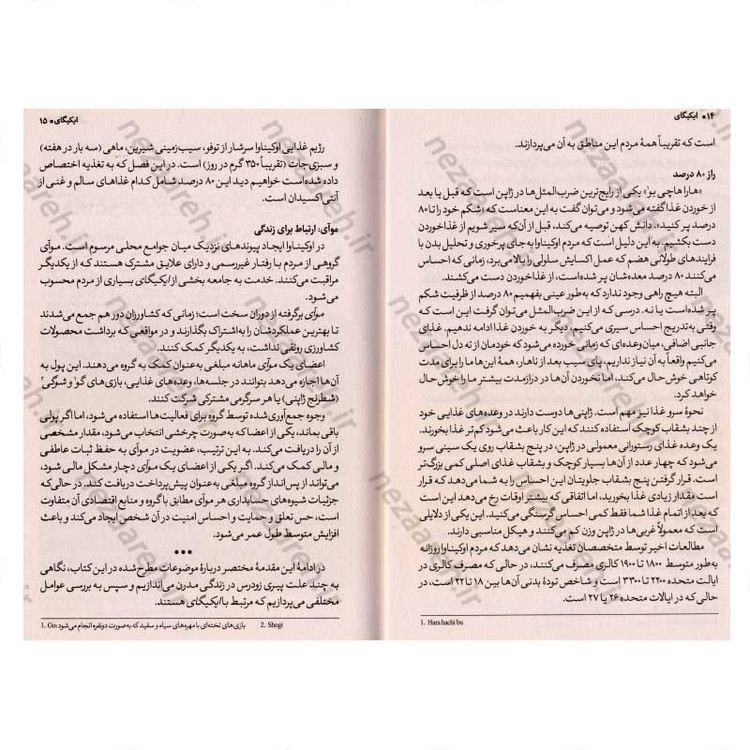 ۱۴ • ایکیگای
است که تقریباً همهٔ مردم این مناطق به آن می‌پردازند.
راز ۸۰ درصد
«هارا هاچی بو»¹ یکی از رایج‌ترین ضرب‌المثل‌ها در ژاپن است که قبل یا بعد
از خوردن غذا گفته می‌شود و می‌توان گفت به این معناست که «شکم خود را تا ۸۰
درصد پر کنید». دانش کهن توصیه می‌کند، قبل از آن‌که سیر شویم از غذاخوردن
دست بکشیم. به این دلیل است که مردم اوکیناوا به جای پرخوری و تحلیل بدن با
فرایندهای طولانی هضم که عمل اکسایش سلولی را بالا می‌برد، زمانی که احساس
می‌کنند ۸۰ درصد معده‌شان پر شده‌است، از غذاخوردن دست می‌کشند.
البته هیچ راهی وجود ندارد که به‌طور عینی بفهمیم ۸۰ درصد از ظرفیت شکم
پر شده‌است یا نه. درسی که از این ضرب‌المثل می‌توان گرفت این است که
وقتی به‌تدریج احساس سیری می‌کنیم، دیگر به خوردن غذا ادامه ندهیم. غذای
جانبی اضافی، میان‌وعده‌ای که زمانی خورده می‌شود که خودمان از ته دل احساس
می‌کنیم واقعاً به آن نیاز نداریم، پای سیب بعد از ناهار، همهٔ این‌ها ما را برای مدت
کوتاهی خوش‌حال می‌کند، اما نخوردن آن‌ها در درازمدت بیشتر ما را خوش‌حال
خواهد کرد.
نحوهٔ سرو غذا نیز مهم است. ژاپنی‌ها دوست دارند در وعده‌های غذایی خود
از چند بشقاب کوچک استفاده کنند که این کار باعث می‌شود کم‌تر غذا بخورند.
یک وعده غذای رستورانی معمولی در ژاپن، در پنج بشقاب روی یک سینی سرو
می‌شود که چهار عدد از آن‌ها بسیار کوچک و بشقاب غذای اصلی کمی بزرگ‌تر
است. قرار گرفتن پنج بشقاب جلویتان این احساس را به شما می‌دهد که قرار
است مقدار زیادی غذا بخورید، اما اتفاقی که بیشتر اوقات رخ می‌دهد این است
که بعد از اتمام غذا شما فقط کمی احساس گرسنگی می‌کنید. این یکی از دلایلی
است که معمولاً غربی‌ها در ژاپن وزن کم می‌کنند و هیکل مناسبی دارند.
مطالعات اخیر توسط متخصصان تغذیه نشان می‌دهد که مردم اوکیناوا روزانه
به‌طور متوسط ۱۸۰۰ تا ۱۹۰۰ کالری مصرف می‌کنند، در حالی که مصرف کالری در
ایالت متحده ۲۲۰۰ تا ۳۳۰۰ است و شاخص تودهٔ بدنی آن‌ها بین ۱۸ تا ۲۲ است، در
حالی که در ایالات متحده ۲۶ یا ۲۷ است.
1. Hara hachi bu
ایکیگای • ۱۵
رژیم غذایی اوکیناوا سرشار از توفو، سیب‌زمینی شیرین، ماهی (سه بار در هفته)
و سبزی‌جات (تقریباً ۳۵۰ گرم در روز) است. در این فصل که به تغذیه اختصاص
داده شده‌است خواهیم دید این ۸۰ درصد شامل کدام غذاهای سالم و غنی از
آنتی‌اکسیدان است.
موآی: ارتباط برای زندگی
در اوکیناوا ایجاد پیوندهای نزدیک میان جوامع محلی مرسوم است. موآی
گروهی از مردم با رفتار غیررسمی و دارای علایق مشترک هستند که از یکدیگر
مراقبت می‌کنند. خدمت به جامعه بخشی از ایکیگای بسیاری از مردم محسوب
می‌شود.
موآی برگرفته از دوران سخت است؛ زمانی که کشاورزان دور هم جمع می‌شدند
تا بهترین عملکردشان را به اشتراک بگذارند و در مواقعی که برداشت محصولات
کشاورزی رونقی نداشت، به یکدیگر کمک کنند.
اعضای یک موآی ماهانه مبلغی به‌عنوان کمک به گروه می‌دهند. این پول به
آن‌ها اجازه می‌دهد بتوانند در جلسه‌ها، وعده‌های غذایی، بازی‌های گو¹ و شوگی²
(شطرنج ژاپنی) یا هر سرگرمی مشترکی شرکت کنند.
وجوه جمع‌آوری شده توسط گروه برای فعالیت‌ها استفاده می‌شود، اما اگر پولی
باقی بماند، یکی از اعضا که به‌صورت چرخشی انتخاب می‌شود، مقدار مشخصی
از آن را دریافت می‌کند. به این ترتیب، عضویت در موآی به حفظ ثبات عاطفی
و مالی کمک می‌کند. اگر یکی از اعضای یک موآی دچار مشکل مالی شود،
می‌تواند از پس‌انداز گروه مبلغی به‌عنوان پیش‌پرداخت دریافت کند. در حالی که
جزئیات شیوه‌های حسابداری هر موآی مطابق با گروه و منابع اقتصادی آن متفاوت
است، حس تعلق و حمایت و احساس امنیت در آن شخص ایجاد می‌کند و باعث
افزایش متوسط طول عمر می‌شود.
•••
در ادامهٔ این مقدمهٔ مختصر دربارهٔ موضوعات مطرح شده در این کتاب، نگاهی
به چند علت پیری زودرس در زندگی مدرن می‌اندازیم و سپس به بررسی عوامل
مختلفی می‌پردازیم که مرتبط با ایکیگای هستند.
1. Go بازی‌های تخته‌ای با مهره‌های سیاه و سفید که به‌صورت دونفره انجام می‌شود 2. Shogi
nezaareh.ir